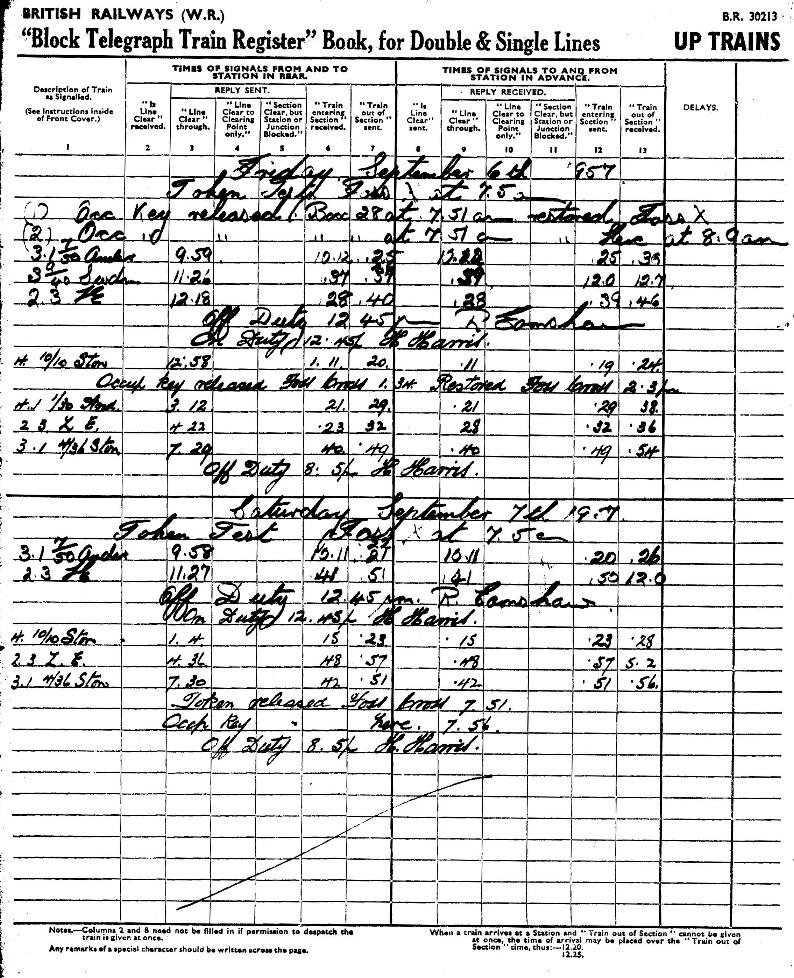 BRITISH RAILWAYS (W.R.) B.R. 30213
"Block Telegraph Train Register" Book, for Double & Single Lines UP TRAINS
TIMES OF SIGNALS FROM AND TO STATION IN REAR. TIMES OF SIGNALS TO AND FROM STATION IN ADVANCE.
Description of Train as Signalled. (See Instructions inside of Front Cover.) REPLY SENT. REPLY RECEIVED. DELAYS.
"Is Line Clear" received. "Line Clear" through. "Line Clear to Clearing Point only." "Section Clear, but Station or Junction Blocked." "Train entering Section" received. "Train out of Section" sent. "Is Line Clear" sent. "Line Clear" through. "Line Clear to Clearing Point only." "Section Clear, but Station or Junction Blocked." "Train entering Section" sent. "Train out of Section" received.
1 2 3 4 5 6 7 8 9 10 11 12 13
Friday September 6th 1957
Token Test Foss X at 7.5
(1) Occ Key released Box 28 at 7.51 am restored Foss X
(2) Occ " " " " at 7.51 " Here at 8.9 am
3.1 7/50 Andov 9.59 10.12 .25 .25 .33
11.26 .37 .39 12.0 12.7
2.3 12.18 28 .40 .28 .39 .46
Off Duty 12 45 p
On Duty 12.45p H Harris.
4. 10/10 Ston 12.58 1.11 20. .11 .19 .24
Occup key released Foss Cross 1.34 Restored Foss Cross 2.3 pm
4.1 1/30 And. 3.12 21. 29. .21 .29 38.
2 3 L E. 4 22 .23 32 28 .32 .36
3.1 4/36 Ston 7.29 40 .49 .40 .49 .54
Off Duty 8.5p H Harris.
Saturday September 7th 19.7.
Token Test Foss X at 7 5
3.1 7/50 Andov 9.58 10.11 .27 10.11 .20 .26
2.3 11.27 41 51 .41 .50 12.0
Off Duty 12.45 pm. R.
On Duty 12.45p H Harris.
4. 10/10 Ston 1.4 15 .23 .15 .23 .28
2 3 L. E. 4.36 48 .57 .48 .57 5.2
3.1 4/36 Ston 7.30 42 .51 .42 .51 .56.
Token released Foss Cross 7 51.
Occp Key " here. 7.56.
Off Duty 8.5p H. Harris.
Notes.—Columns 2 and 8 need not be filled in if permission to despatch the train is given at once.
Any remarks of a special character should be written across the page.
When a train arrives at a Station and "Train out of Section" cannot be given at once, the time of arrival may be placed over the "Train out of Section" time, thus:—12.20. 12.25.